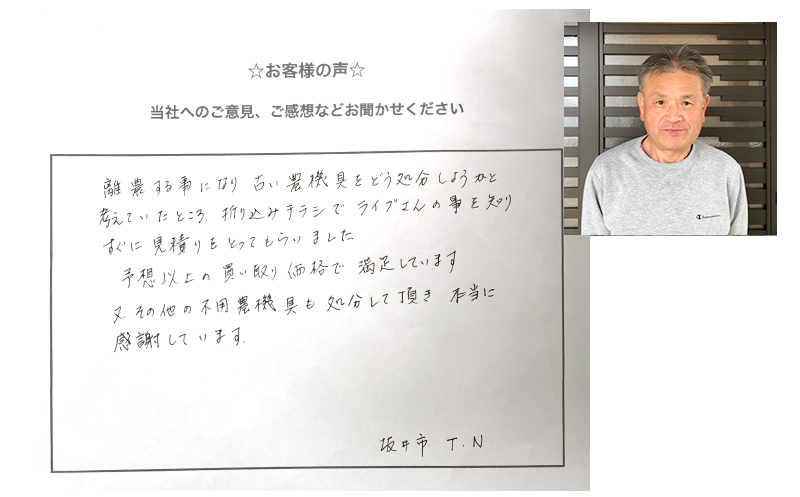 ☆お客様の声☆
当社へのご意見、ご感想などお聞かせください
離農する事になり 古い農機具をどう処分しようかと
考えていたところ、折り込みチラシでライブさんの事を知り
すぐに見積りをとってもらいました
予想以上の買い取り価格で満足しています
又、その他の不用農機具も処分して頂き 本当に
感謝しています.
坂井市 T.N
Champion